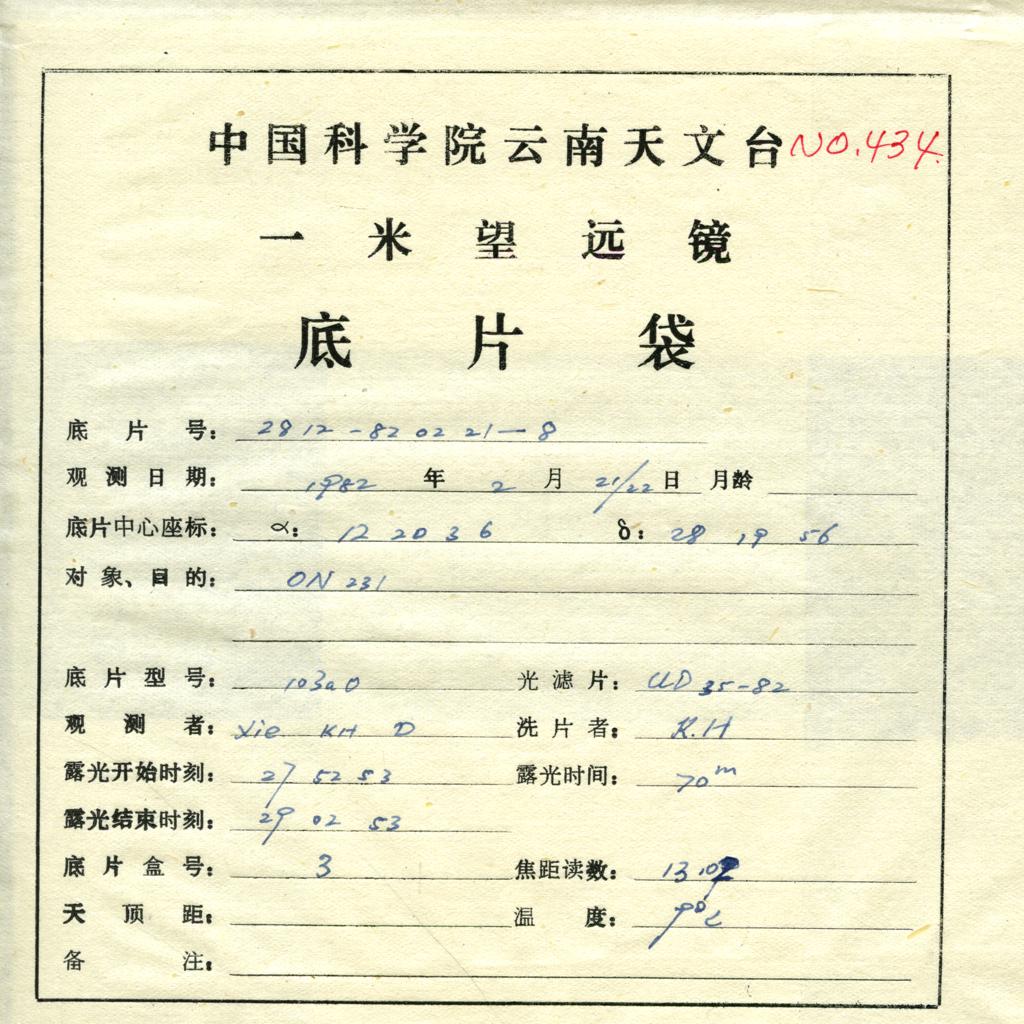 中国科学院云南天文台 NO.434.
一米望远镜
底片袋
底片号: 2812-820221-8
观测日期: 1982 年 2 月 21/22 日 月龄
底片中心座标: α: 12 20 3 6 δ: 28 19 56
对象、目的: ON 231
底片型号: 103aO 光滤片: 35-82
观测者: Xie KH D 洗片者: K.H
露光开始时刻: 27 52 53 露光时间: 70m
露光结束时刻: 29 02 53
底片盒号: 3 焦距读数:
天顶距: 温度: 9°C
备注: